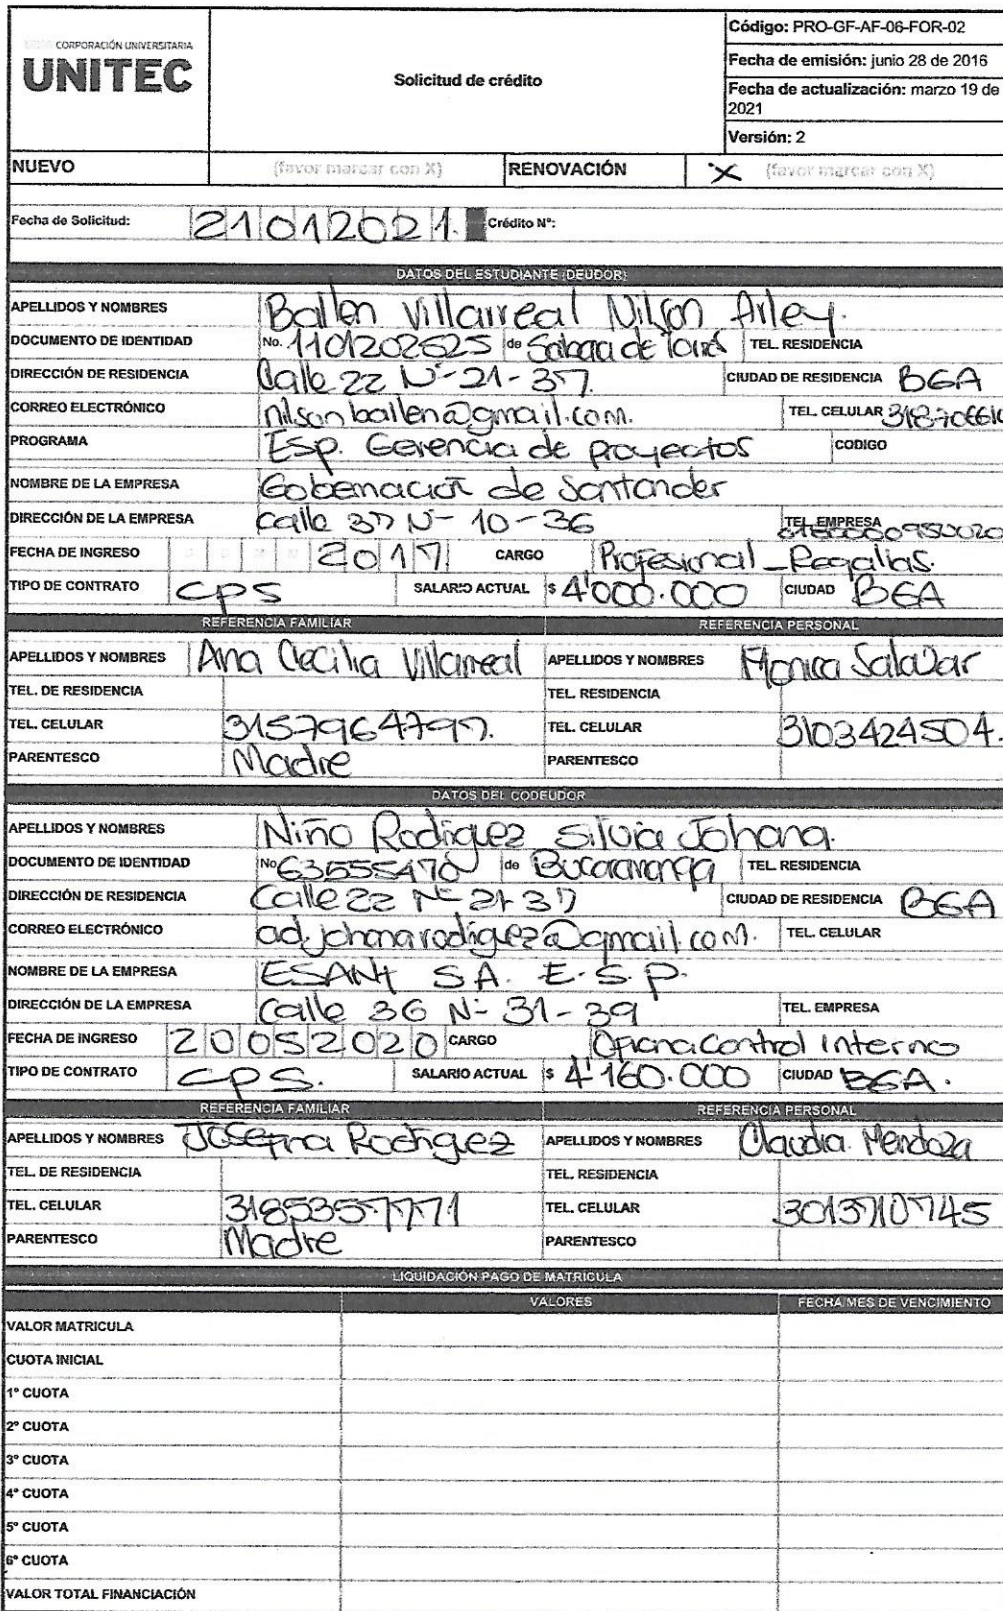 CORPORACIÓN UNIVERSITARIA
UNITEC
Solicitud de crédito
Código: PRO-GF-AF-06-FOR-02
Fecha de emisión: junio 28 de 2016
Fecha de actualización: marzo 19 de 2021
Versión: 2
NUEVO (favor marcar con X) RENOVACIÓN X (favor marcar con X)
Fecha de Solicitud: 21012021. Crédito N°:
DATOS DEL ESTUDIANTE (DEUDOR)
APELLIDOS Y NOMBRES Ballen Villarreal Nilson Arley.
DOCUMENTO DE IDENTIDAD No. 1101202525 de Sabana de Torres TEL. RESIDENCIA
DIRECCIÓN DE RESIDENCIA Calle 22 N°-21-37. CIUDAD DE RESIDENCIA BGA
CORREO ELECTRÓNICO nilsonballen@gmail.com. TEL. CELULAR
PROGRAMA Esp. Gerencia de proyectos CODIGO
NOMBRE DE LA EMPRESA Gobernación de Santander
DIRECCIÓN DE LA EMPRESA Calle 37 N°- 10-36 TEL. EMPRESA
FECHA DE INGRESO 2017 CARGO Profesional - Regalías.
TIPO DE CONTRATO CPS SALARIO ACTUAL $ 4'000.000 CIUDAD BGA
REFERENCIA FAMILIAR REFERENCIA PERSONAL
APELLIDOS Y NOMBRES Ana Cecilia Villarreal APELLIDOS Y NOMBRES Monica Salazar
TEL. DE RESIDENCIA TEL. RESIDENCIA
TEL. CELULAR 3157964797. TEL. CELULAR 3103424504.
PARENTESCO Madre PARENTESCO
DATOS DEL CODEUDOR
APELLIDOS Y NOMBRES Niño Rodriguez Silvia Johana.
DOCUMENTO DE IDENTIDAD No 63555470 de Bucaramanga TEL. RESIDENCIA
DIRECCIÓN DE RESIDENCIA Calle 22 N° 21-37 CIUDAD DE RESIDENCIA BGA
CORREO ELECTRÓNICO ad.johanarodriguez@gmail.com. TEL. CELULAR
NOMBRE DE LA EMPRESA ESANT S.A. E.S.P.
DIRECCIÓN DE LA EMPRESA Calle 36 N°- 31-39 TEL. EMPRESA
FECHA DE INGRESO 20052020 CARGO Oficina Control Interno
TIPO DE CONTRATO CPS. SALARIO ACTUAL $ 4'160.000 CIUDAD BGA.
REFERENCIA FAMILIAR REFERENCIA PERSONAL
APELLIDOS Y NOMBRES Josefina Rodriguez APELLIDOS Y NOMBRES Claudia Mendoza
TEL. DE RESIDENCIA TEL. RESIDENCIA
TEL. CELULAR 3185357771 TEL. CELULAR 3013710745
PARENTESCO Madre PARENTESCO
LIQUIDACIÓN PAGO DE MATRICULA
VALORES FECHA/MES DE VENCIMIENTO
VALOR MATRICULA
CUOTA INICIAL
1° CUOTA
2° CUOTA
3° CUOTA
4° CUOTA
5° CUOTA
6° CUOTA
VALOR TOTAL FINANCIACIÓN